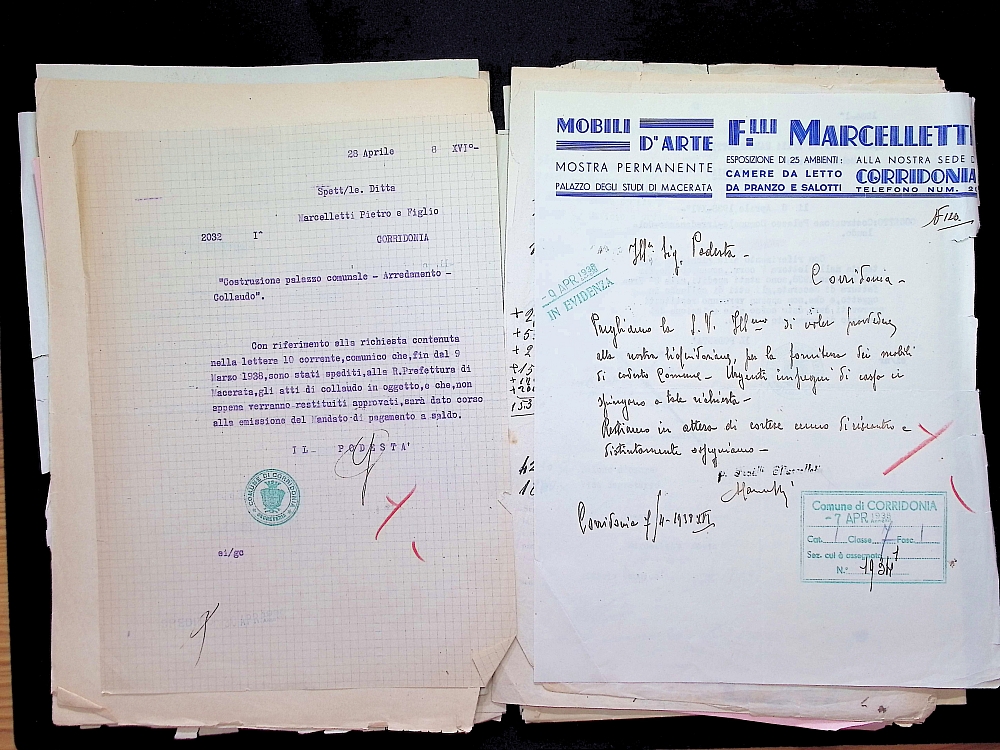 28 Aprile 8 XVI°-
Spett/le. Ditta
Marcelletti Pietro e Figlio
2032 I^
CORRIDONIA
"Costruzione palazzo comunale - Arredamento -
Collaudo".
Con riferimento alla richiesta contenuta
nella lettera 10 corrente,comunico che,fin dal 9
Marzo 1938,sono stati spediti,alla R.Prefettura di
Macerata,gli atti di collaudo in oggetto,e che,non
appena verranno restituiti approvati,sarà dato corso
alla emissione del Mandato di pagamento a saldo.
IL PODESTA'
COMUNE DI CORRIDONIA
ei/gc
MOBILI D'ARTE
MOSTRA PERMANENTE
PALAZZO DEGLI STUDI DI MACERATA
F.LLI MARCELLETTI
ESPOSIZIONE DI 25 AMBIENTI:
CAMERE DA LETTO
DA PRANZO E SALOTTI
ALLA NOSTRA SEDE
CORRIDONIA
TELEFONO NUM.
Ill.º Sig. Podestà -
Corridonia -
-9 APR 1938
IN EVIDENZA
Preghiamo la S.V. Ill.ma di voler provvedere
alla nostra liquidazione, per la fornitura dei mobili
di codesto Comune - Urgenti impegni di cassa ci
spingono a tale richiesta -
Restiamo in attesa di cortese cenno di riscontro e
distintamente ossequiamo -
Corridonia 7/4-1938 XVI
Comune di CORRIDONIA
-7 APR 1938
Cat. 1 Classe 7 Fasc. 1
Sez. cui è assegnata 1
N.° 1934